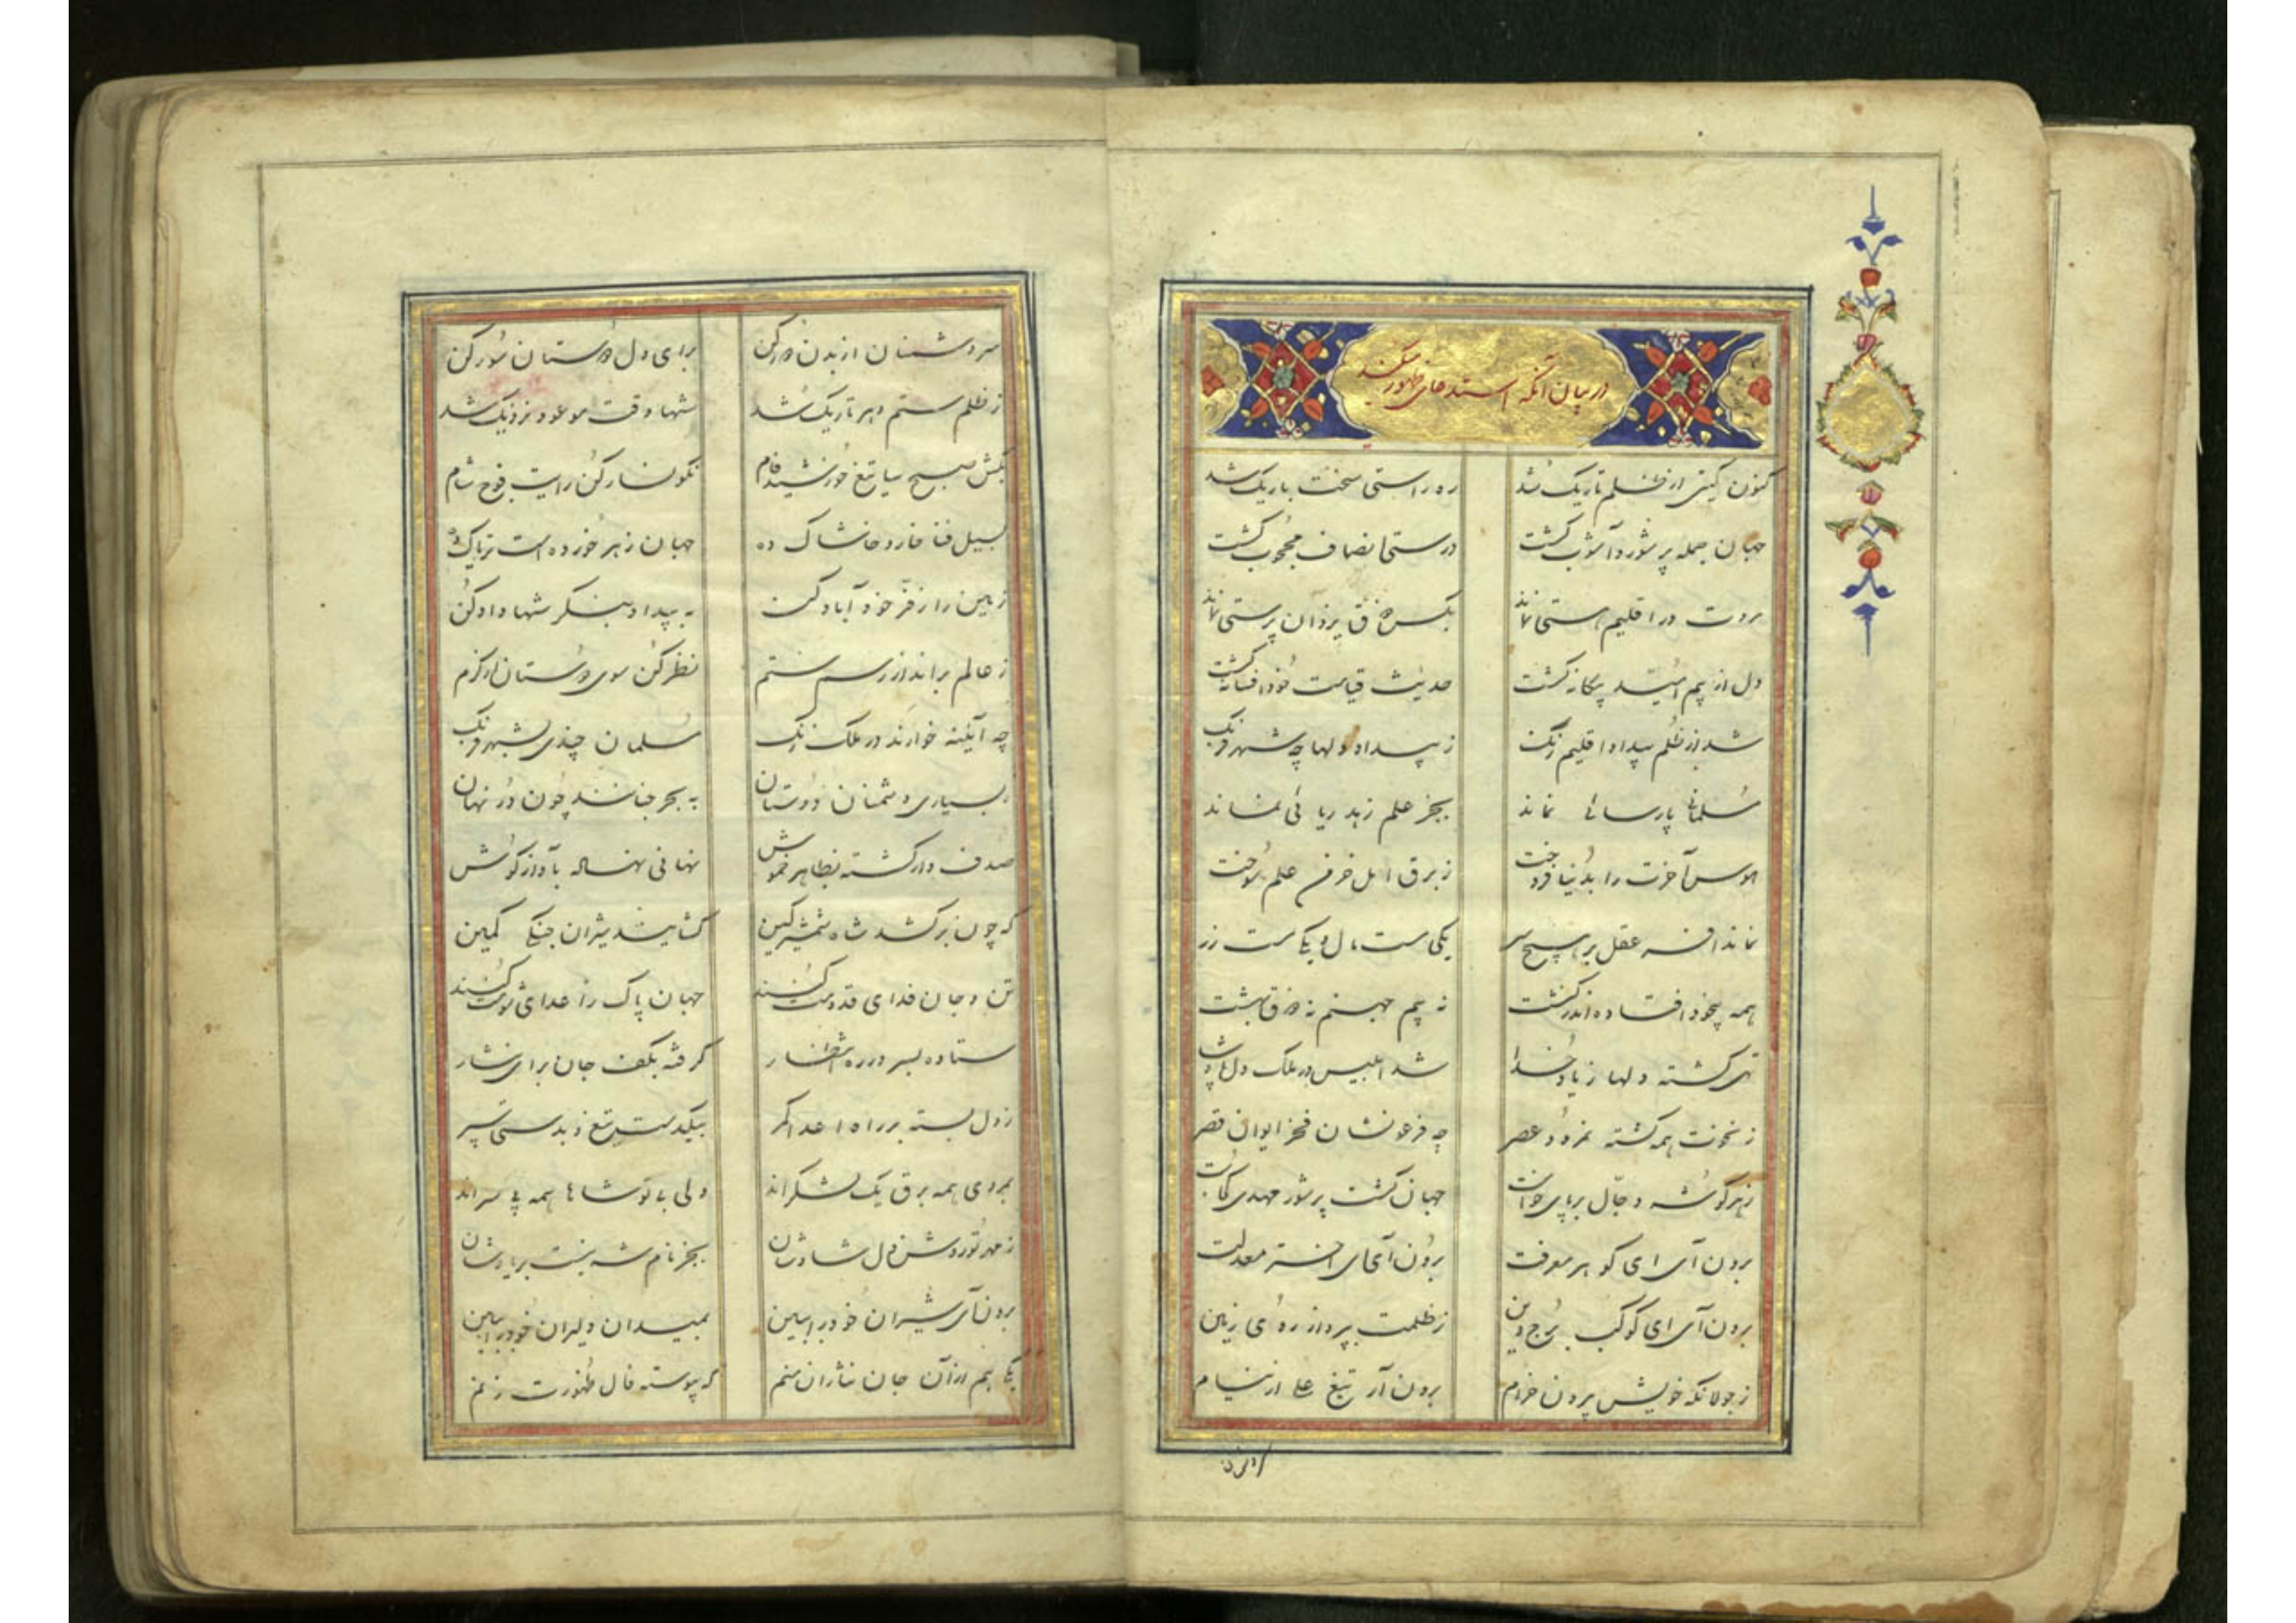 در بیان آنکه استدعای ظهور میکند
کنون گیتی از ظلم تاریک شد ره راستی سخت باریک شد
جهان جمله پر شور و آشوب گشت درستی انصاف محجوب گشت
مروت در اقلیم هستی نماند بکس ذوق یزدان پرستی نماند
دل از بیم امید بیگانه گشت حدیث قیامت خود افسانه گشت
شد از ظلم بیداد اقلیم زنگ ز بیداد دلها چه شهر فرنگ
مسلمانی پارسائی نماند بجز علم زهد ریائی نماند
هوس آخرت را بدنیا فروخت ز برق امل خرمن علم سوخت
نماند افسر عقل بر هیچ سر یکی مست مال و یکی مست زر
همه بیخود افتاده اند کنشت نه بیم جهنم نه ذوق بهشت
تهی گشته دلها ز یاد خدا شد ابلیس در ملک دل پادشا
ز نخوت همه گشته نمرود عصر چه فرعونشان فخر ایوان قصر
زهر گوشه دجّال بر پای خواست جهان گشت پر شور مهدی کجاست
برون آی ای گوهر معرفت برون آی ای اختر معدلت
برون آی ای کوکب برج دین ز ظلمت بپرداز روی زمین
ز جولانگه خویش بیرون خرام برون آر تیغ علی از نیام
سر دشمنان از بدن دور کن برای دل دوستان سور کن
ز ظلم ستم دهر تاریک شد شها وقت موعود نزدیک شد
بکش صبح سیا تیغ خورشید فام نگونسار کن رایت فوج شام
بسیل فنا خار و خاشاک ده جهان زهر خورده است تریاک ده
زمین را ز فرّ خود آباد کن به بیداد بنگر شها داد کن
ز عالم برانداز رسم ستم نظر کن سوی دوستان از کرم
چه آئینه خوارند در ملک زنگ مسلمان چندی بشهر فرنگ
ز بسیاری دشمنان دوستان به بحر جنانند چون در نهان
صدف وار گشته بظاهر خموش نهانی نهاله باواز گوش
که چون بر کشد شاه شمشیر کین گشایند شیران جنگی کمین
تن و جان فدای قدومت کنند جهان پاک ز اعدای شومت کنند
ستاده بسر در ره انتظار گرفته بکف جان برای نثار
ز دل بسته بر راه اعدا کمر بیکدست تیغ و بدستی سپر
بمردی همه برق یک لشکراند ولی بی تو شاها همه بی سراند
ز مهر تو روشن دل شادشان بجز نام شه نیست بر یادشان
برون آی شیران خود را ببین بمیدان دلیران خود را ببین
یکی هم از آن جان نثاران منم که پیوسته فال ظهورت زنم